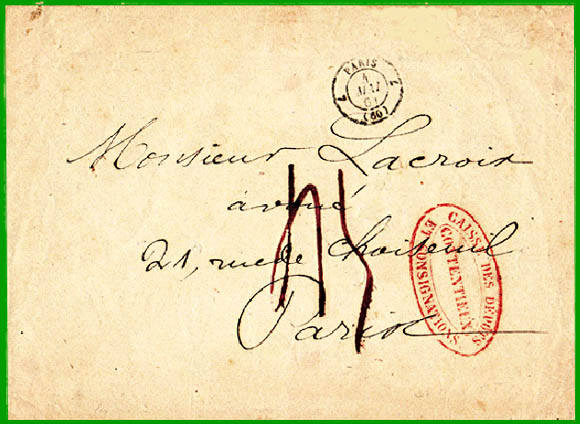 PARIS
2 2
4
MAI
61
(60)
Monsieur Lacroix
avoué
21, rue de Choiseul
Paris
CAISSE DES DEPOTS
ET CONSIGNATIONS
CONTENTIEUX